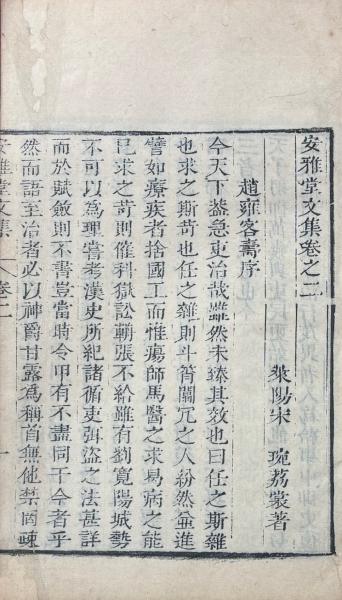 安雅堂文集卷之二
萊陽宋 琬荔裳著
趙雍客壽序
今天下葢急吏治哉雖然未臻其效也曰任之斯雜
也求之斯苛也任之雜則斗筲闒冗之人紛然並進
譬如療疾者捨國工而惟瘍師馬醫之求曷病之能
已求之苛則催科獄訟輈張不給雖有劉寬陽城勢
不可以為理嘗考漢史所紀諸循吏弭盜之法甚詳
而於賦斂則不書豈當時令甲有不盡同于今者乎
然而語至治者必以神爵甘露為稱首無他禁罔疎
安雅堂文集 卷二 一